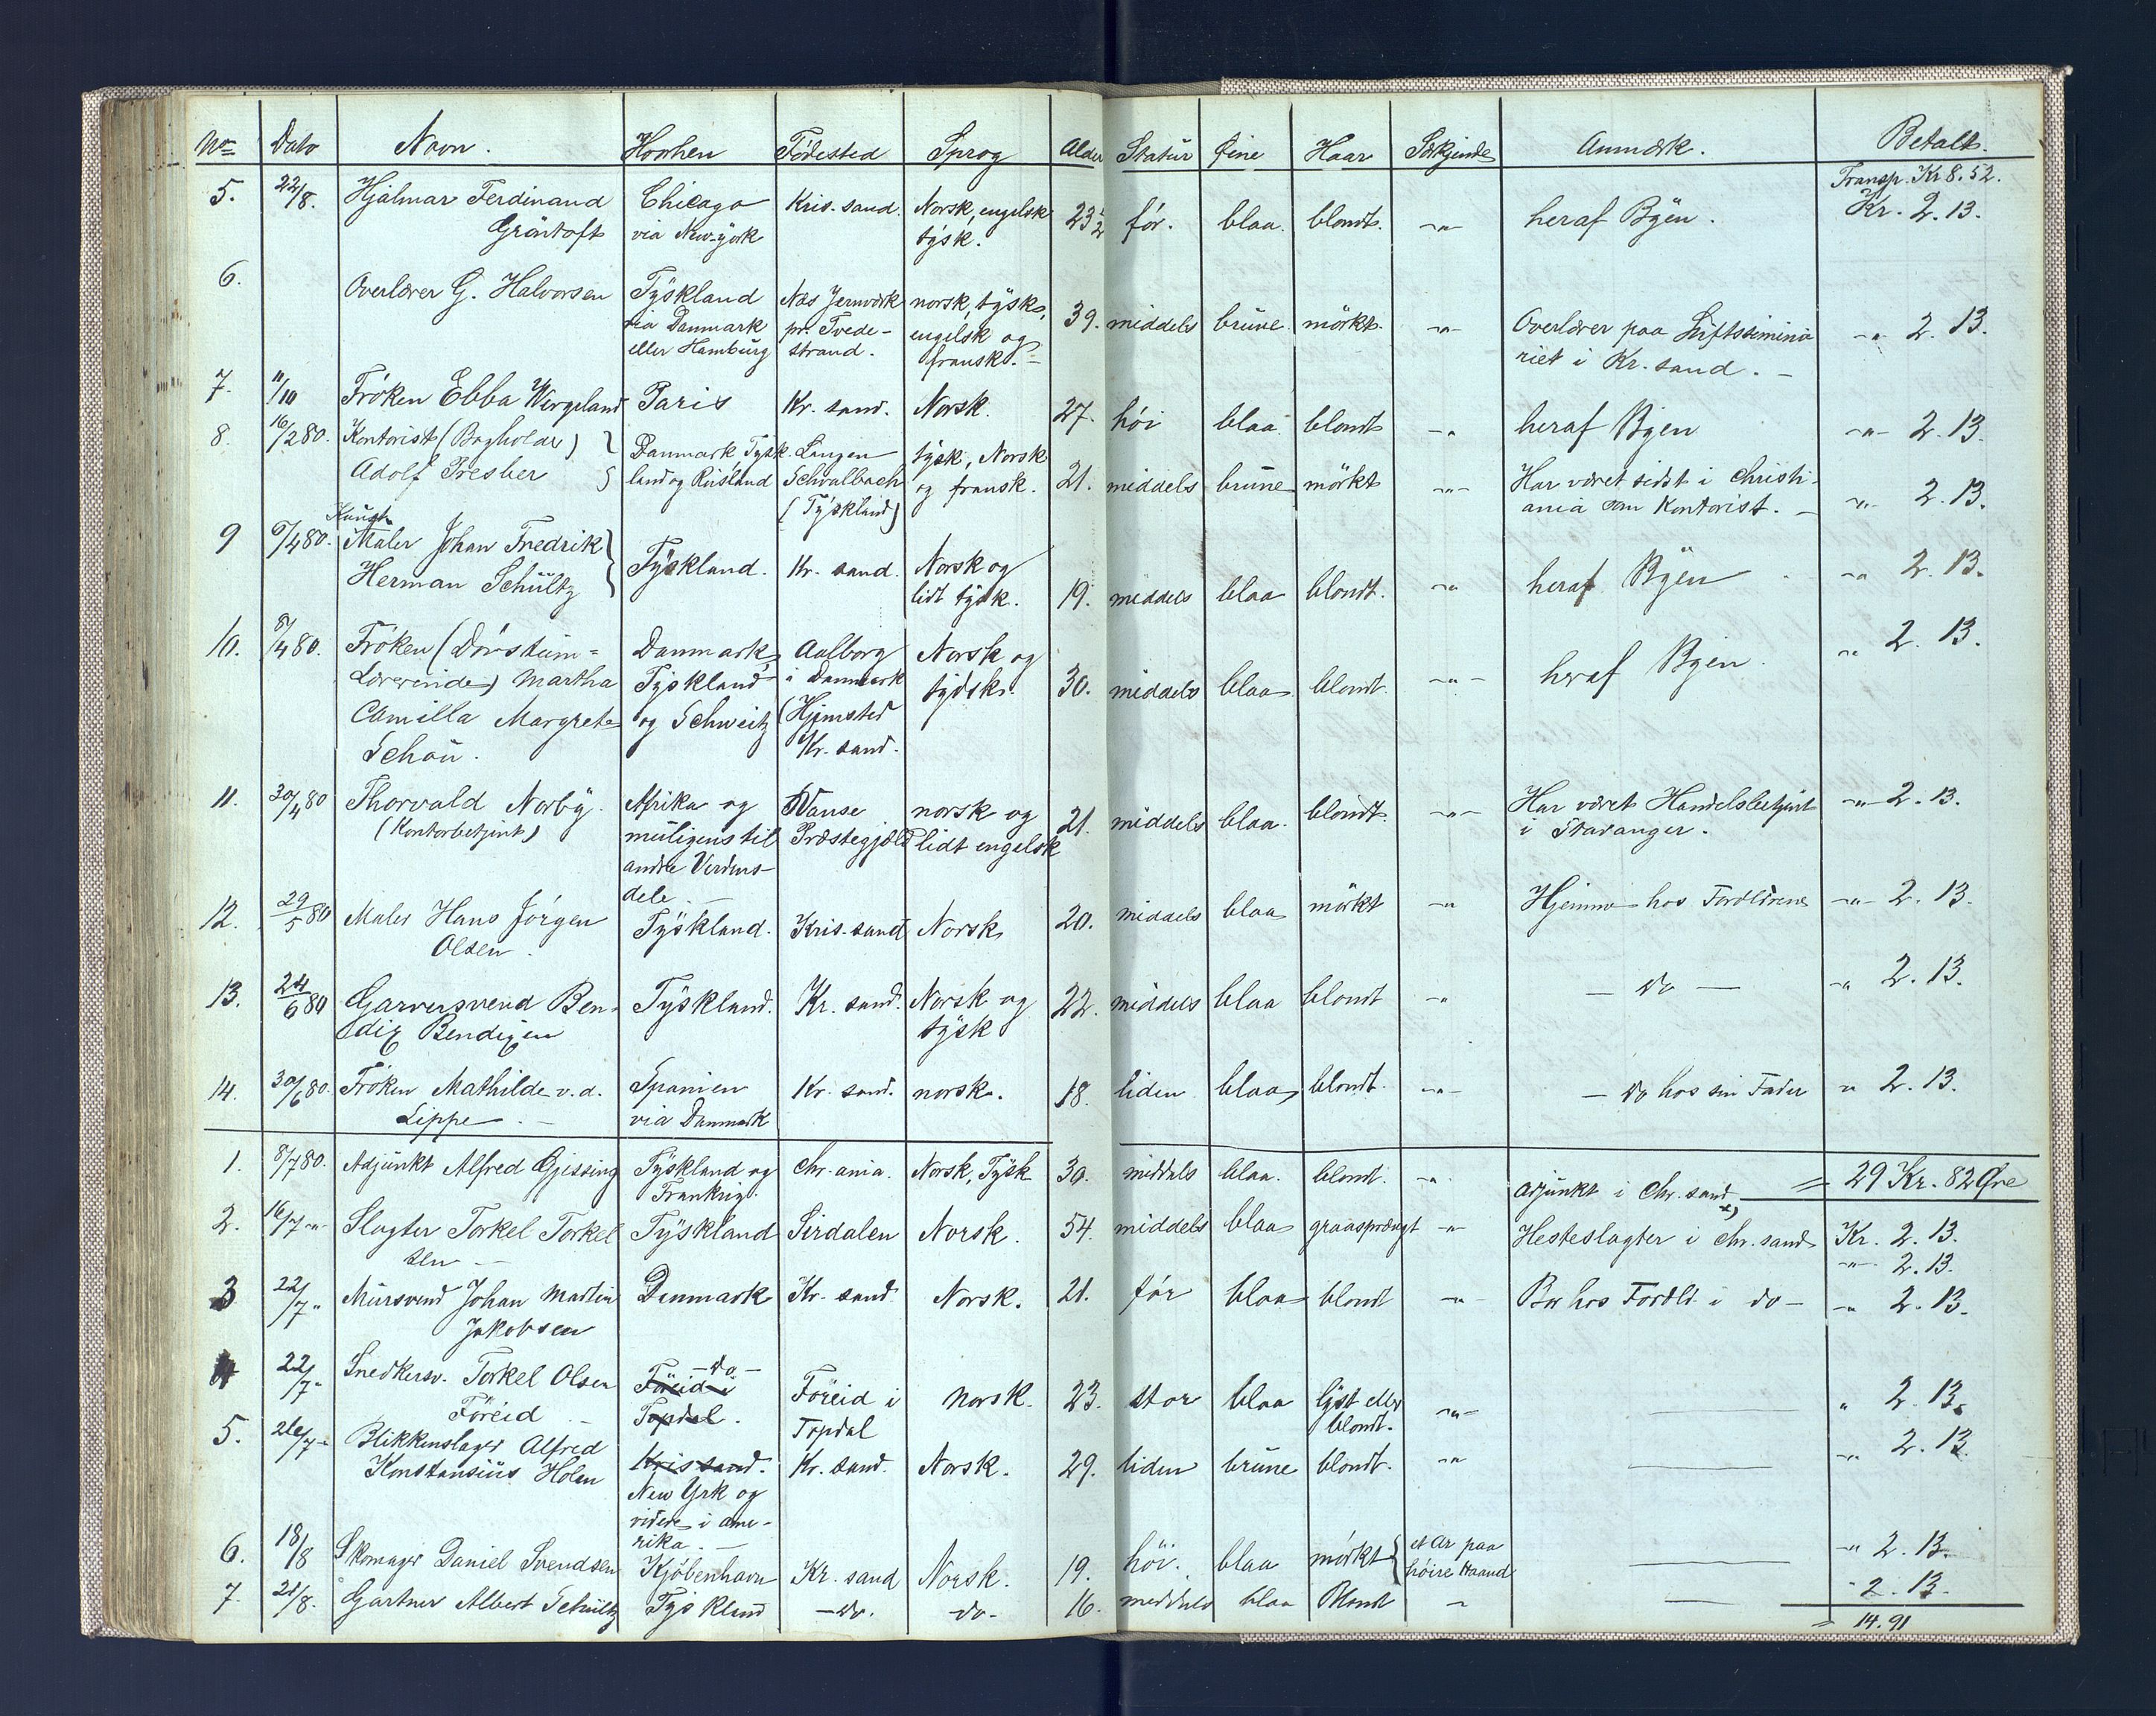 No Dato Navn. Hvorhen Födested Sprog Alder Statur Öine Haar Særkjende Anmærk. Betalt.
Transp. Kr 8.52.
5. 22/8. Hjalmar Ferdinand Chicago Kris.sand. Norsk, engelsk 23 1/2 för. blaa. blondt. -"- heraf Byen. Kr. 2.13.
Gröntoft via New-york tysk.
6. Overlærer G. Halvorsen Tyskland Næs Jernværk norsk, tysk, 39. middels brune. mörkt. -"- Overlærer paa Stiftssemina -"- 2.13.
via Danmark pr. Tvede- engelsk og riet i Kr.sand. -
eller Hamburg strand. fransk. -
7. 11/10 Fröken Ebba Wergeland Paris Kr. sand. Norsk. 27. höi blaa blondt -" heraf Byen -"- 2.13.
8. 16/2 80. Kontorist (Bogholder) Danmark Tysk Langen tysk, Norsk 21. middels brune mörkt -"- Har været sidst i Christi- -"- 2.13.
Adolf Presber land og Rusland Schvalbach og fransk. ania som Kontorist. -
(Tyskland)
Kunst-
9 6/4 80. Maler Johan Fredrik Tyskland. Kr. sand. Norsk og 19. middels blaa blondt. -" heraf Byen -" 2.13.
Herman Schültz lidt tysk.
10. 8/4 80. Fröken (Dövstum- Danmark, Aalborg Norsk og 30. middels blaa blondt. -"- heraf Byen. -" 2.13.
Lærerinde) Martha Tyskland i Danmark tydsk.
Camilla Margrete og Schweitz (Hjemsted
Schou. Kr. sand.
11. 30/4 80 Thorvald Norby. Afrika og Vanse norsk og 21. middels blaa. blondt. -"- Har været Handelsbetjent -"- 2.13.
(Kontorbetjent) muligens til Præstegjæld lidt engelsk i Stavanger.
andre Verdens-
dele. -
12. 29/5 80 Maler Hans Jörgen Tyskland. Kris.sand Norsk 20. middels blaa mörkt -" Hjemme hos Forældrene -"- 2.13.
Olsen.
13. 24/6 80 Garversvend Ben- Tyskland. Kr. sand. Norsk og 22. middels blaa blondt -" - do - -" 2.13.
dix Bendixen tysk
14. 30/6 80. Fröken Mathilde v. d. Spanien Kr. sand. norsk. 18. liden blaa blondt. -"- - do hos sin Fader " 2.13.
Lippe. - via Danmark
1. 8/7 80. Adjunkt Alfred Gjessing Tyskland og Chr.ania. Norsk, Tysk 30. middels blaa. blondt. -" Adjunkt i Chr.sand = 29 Kr. 82 Øre
Frankrig. x)
2. 16/7 -"- Slagter Torkel Torkel Tyskland Sirdalen Norsk. 54. middels blaa graasprængt -" Hesteslagter i Chr.sand Kr. 2.13.
sen - -"- 2.13.
3 22/7 " Mursvend Johan Martin Danmark Kr. sand Norsk. 21. för blaa blondt -"- Bor hos Foræld. i do - -" 2.13.
Jakobsen
4 22/7 - Snedkersv. Torkel Olsen -do- Föreid i norsk. 23. stor blaa lyst eller -"- " 2.13.
Föreid Föreid i Topdal. Topdal blondt.
5. 26/7 - Blikkenslager Alfred Kris sand. Kr. sand. Norsk. 29. liden brune blondt. -" -" 2.13.
Konstansius Holm New Yrk og
videre i Ame-
rika. -
6. 18/8 Skomager Daniel Svendsen Kjöbenhavn Kr. sand Norsk. 19. höi. blaa mörkt et Ar paa höire Haand -" 2.13.
7. 21/8. Gartner Albert Schültz Tyskland -do. do- 16. middels blaa Blondt - " 2.13.
= 14.91